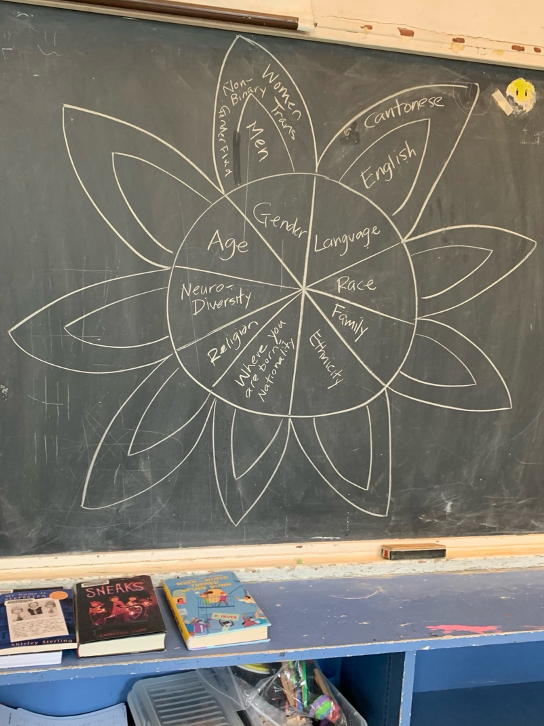 Non-
Binary
Women
Trans
Gender Fluid
Men
Cantonese
English
Gender
Language
Age
Race
Neuro-
Diversity
Family
Religion
Where you
are born,
Nationality
Ethnicity
SNEAKS
Shirley Sterling